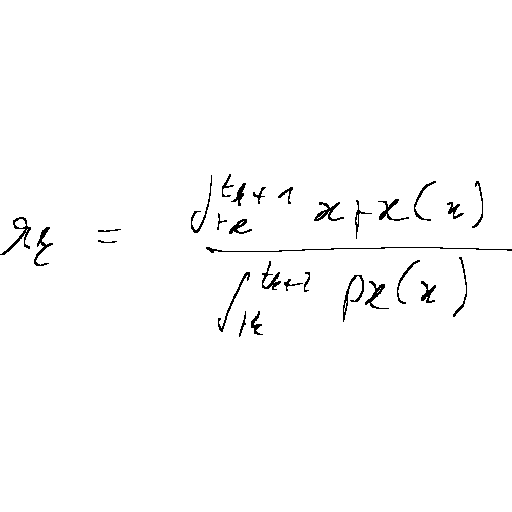 r_k = \frac{\int_{t_k}^{t_{k+1}} x p x(x)}{\int_{t_k}^{t_{k+1}} p x(x)}